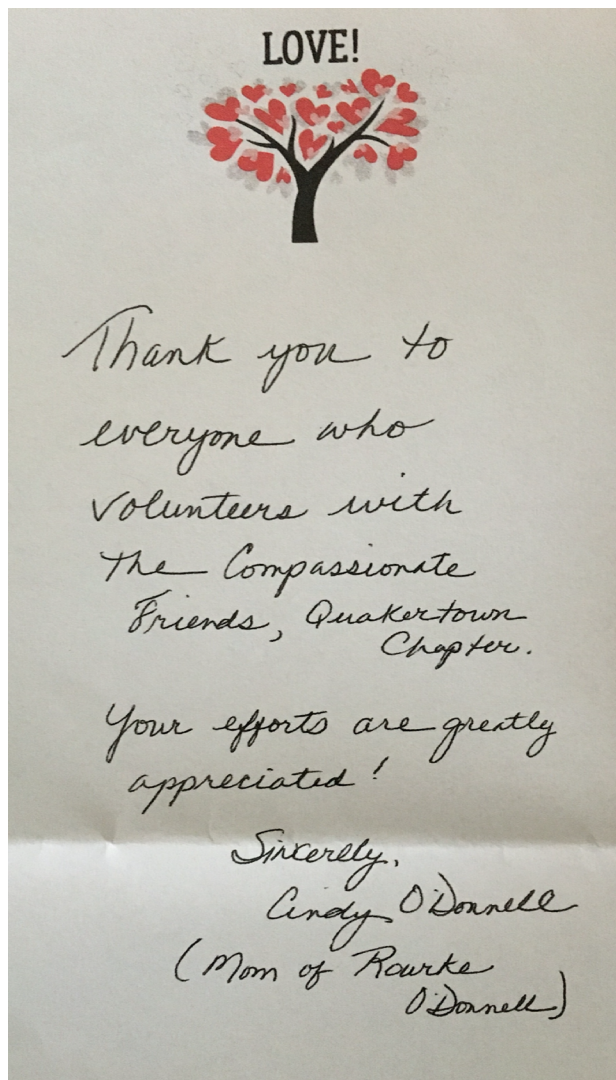 LOVE!
Thank you to
everyone who
volunteers with
the Compassionate
Friends, Quakertown
Chapter.
Your efforts are greatly
appreciated!
Sincerely,
Cindy O'Donnell
(Mom of Rourke
O'Donnell)